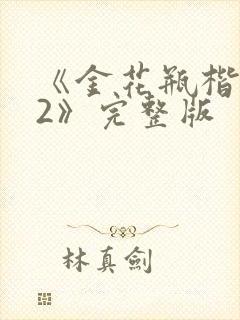 《金花瓶楷
2》完整版
林真劍